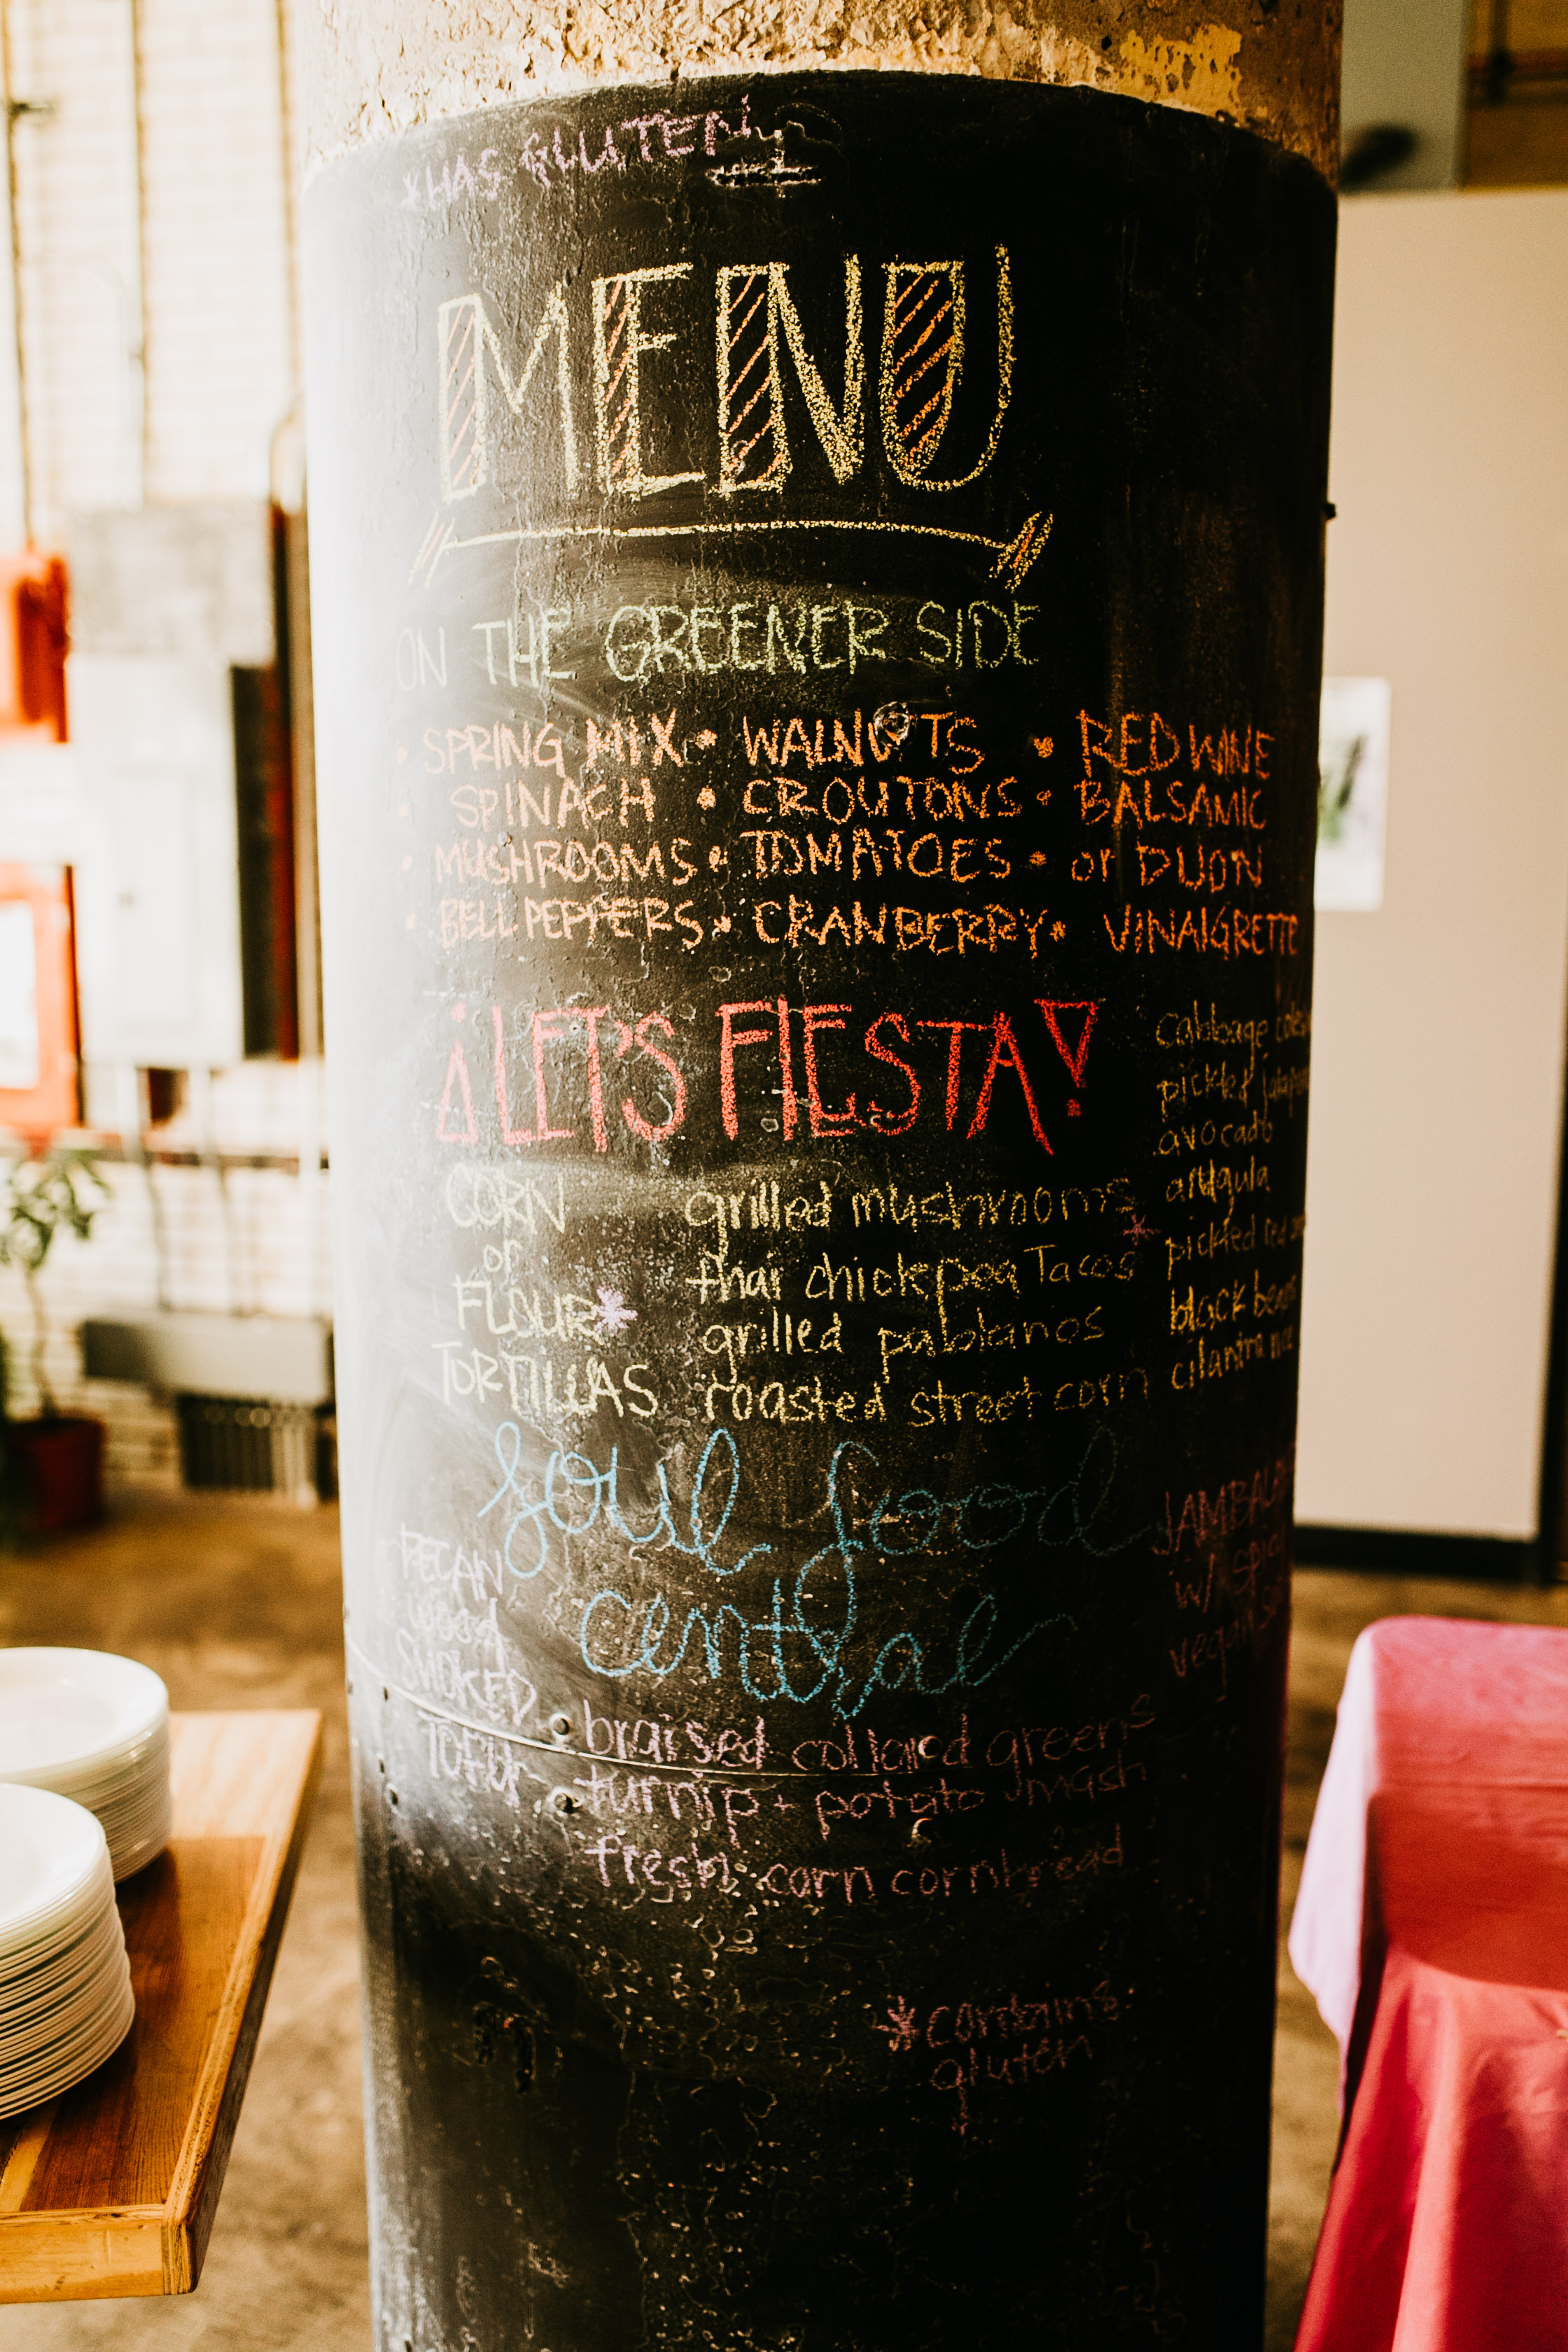 *HAS GLUTEN!
MENU
ON THE GREENER SIDE
• SPRING MIX • WALNUTS • RED WINE
• SPINACH • CROUTONS • BALSAMIC
• MUSHROOMS • TOMATOES • or DIJON
• BELL PEPPERS • CRANBERRY • VINAIGRETTE
¡LET'S FIESTA!
CORN
or
FLOUR*
TORTILLAS
grilled mushrooms
thai chickpea Tacos*
grilled pablanos
roasted street corn
cabbage
pickled
avocado
arugula
pickled red
black beans
cilantro rice
soul food
central
PECAN
WOOD
SMOKED
TOFU
braised collard greens
turnip + potato mash
fresh corn cornbread
w/
vegan
*contains
gluten